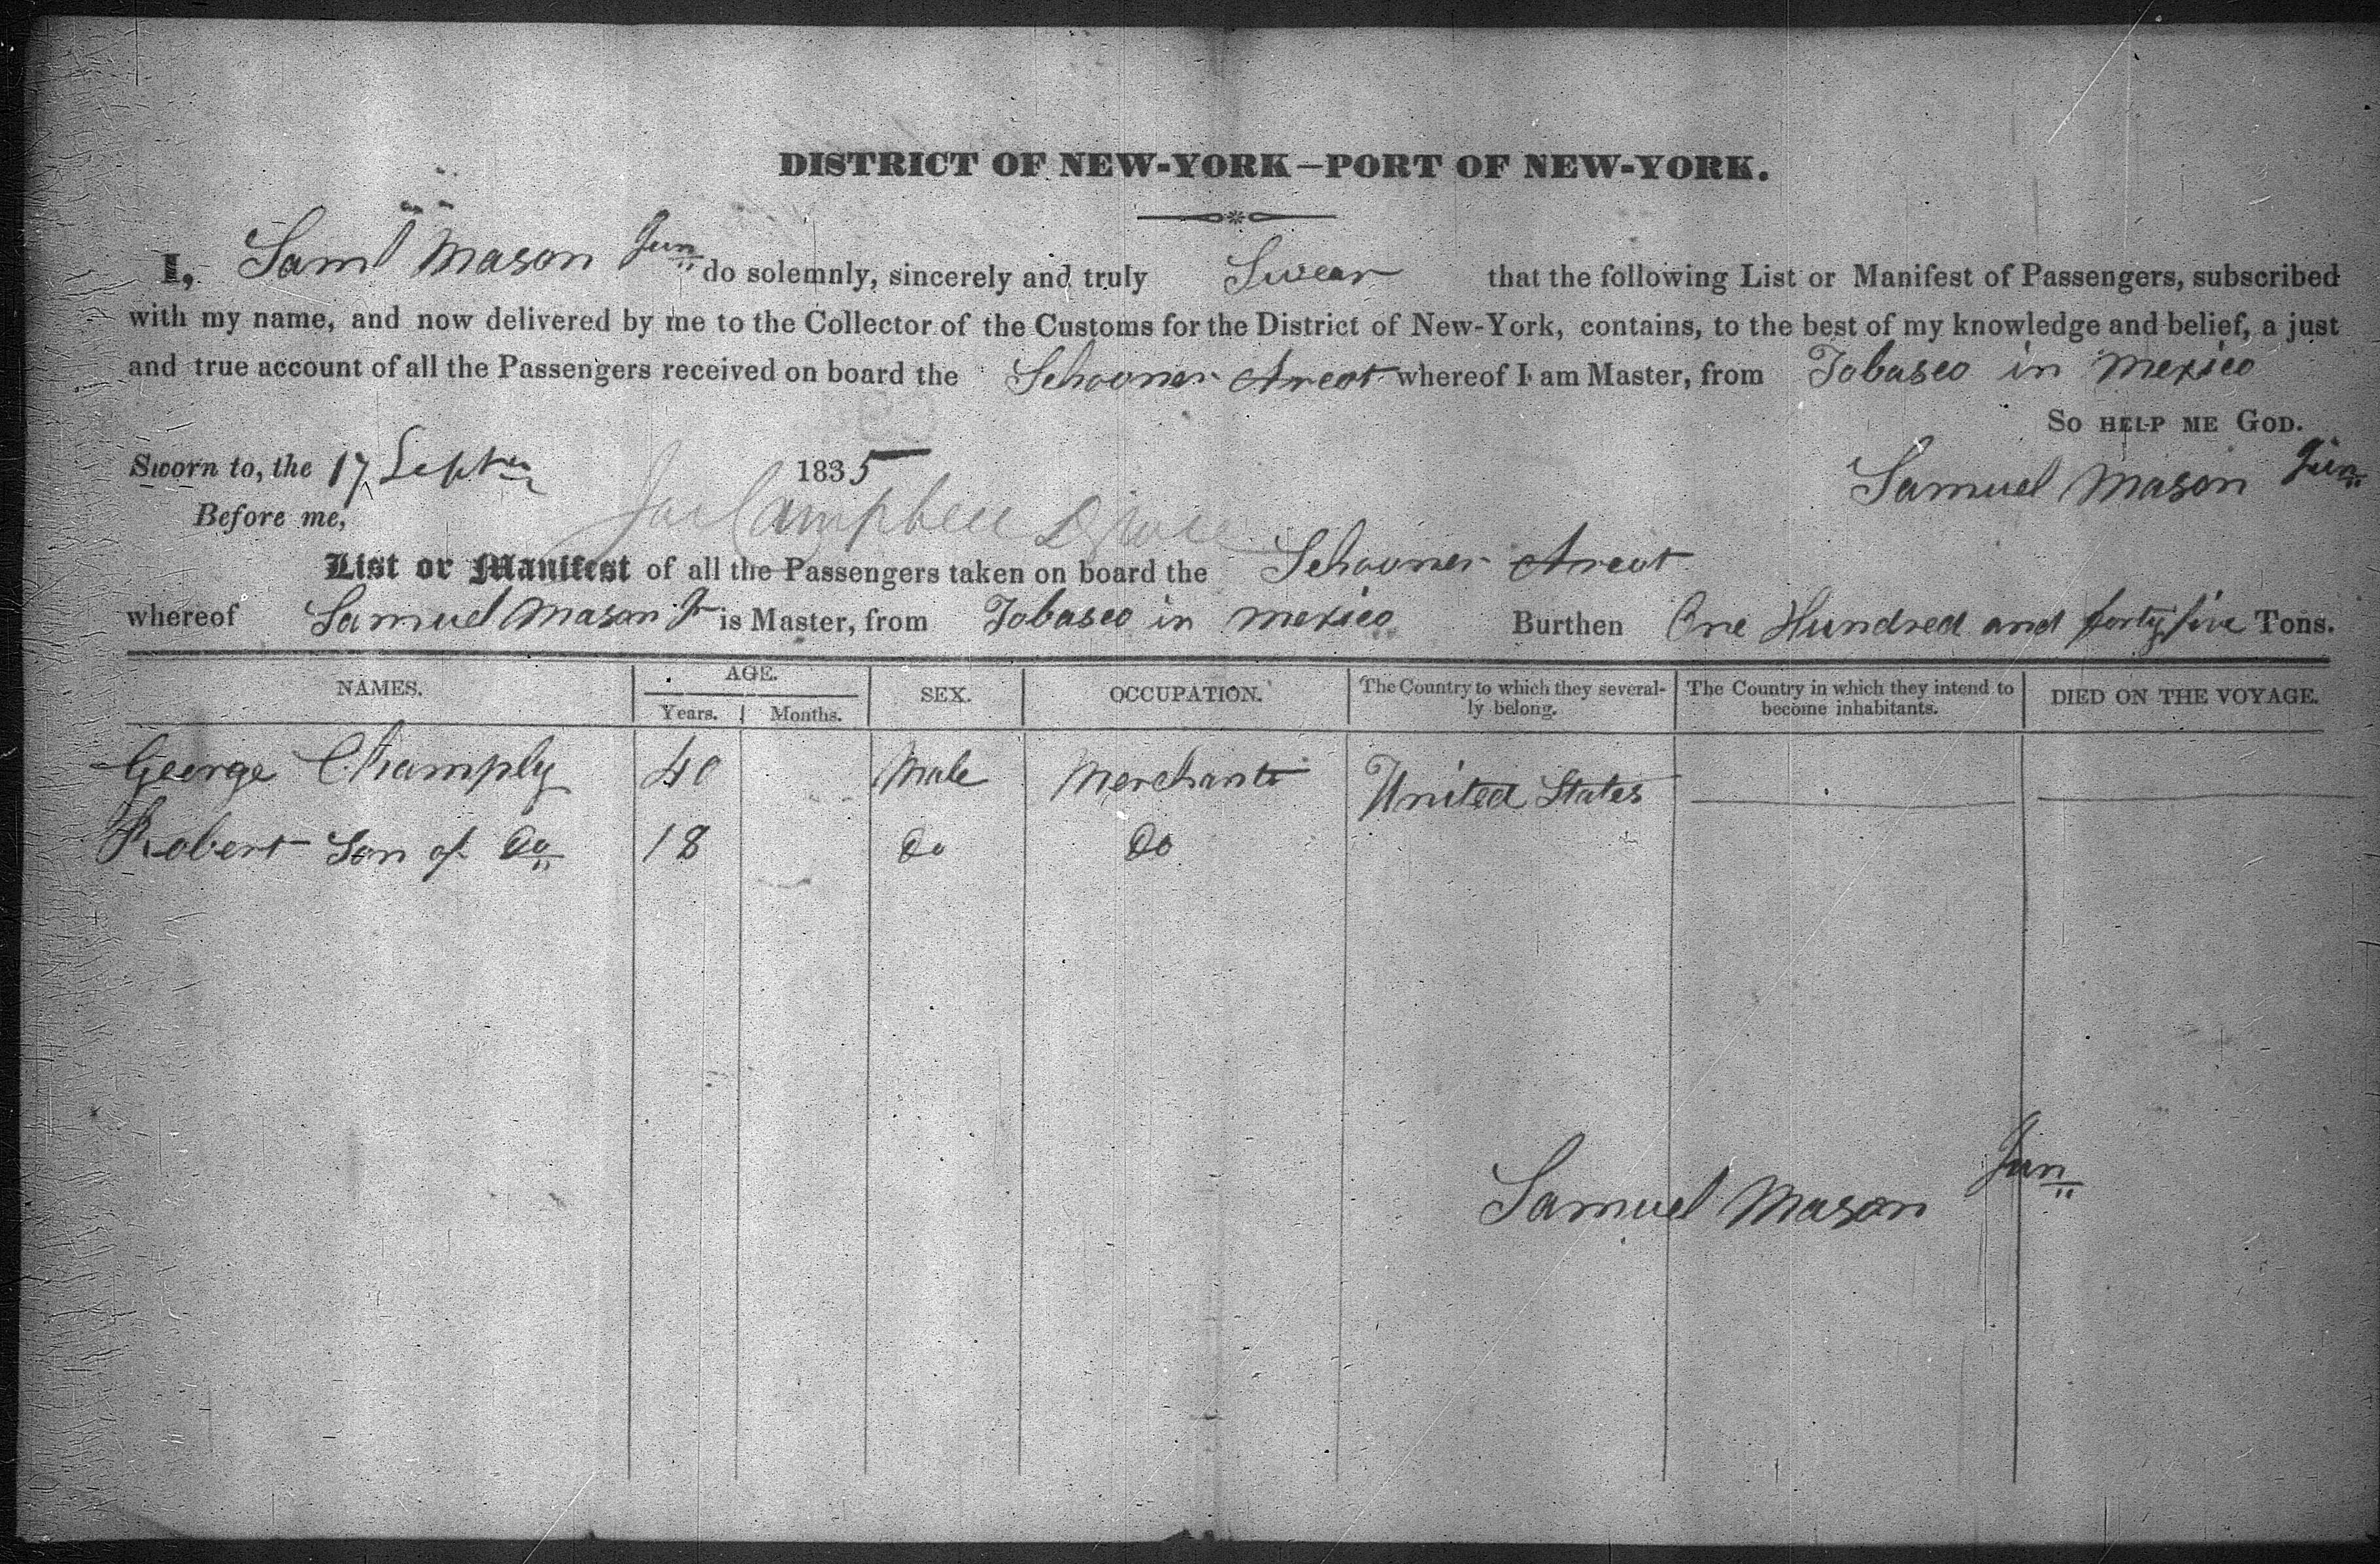 DISTRICT OF NEW-YORK—PORT OF NEW-YORK.
I, Saml Mason Jun do solemnly, sincerely and truly Swear that the following List or Manifest of Passengers, subscribed
with my name, and now delivered by me to the Collector of the Customs for the District of New-York, contains, to the best of my knowledge and belief, a just
and true account of all the Passengers received on board the Schooner whereof I am Master, from Tobasco in Mexico
So HELP ME GOD.
Sworn to, the 17 Septr 1835 Samuel Mason Jun
Before me, Campbell
List or Manifest of all the Passengers taken on board the Schooner
whereof Samuel Mason Jr is Master, from Tobasco in Mexico Burthen One Hundred and forty five Tons.
NAMES. AGE. Years. Months. SEX. OCCUPATION. The Country to which they severally belong. The Country in which they intend to become inhabitants. DIED ON THE VOYAGE.
George Champly 40 Male Merchant United States
Robert Son of Do 18 Do Do
Samuel Mason Jun